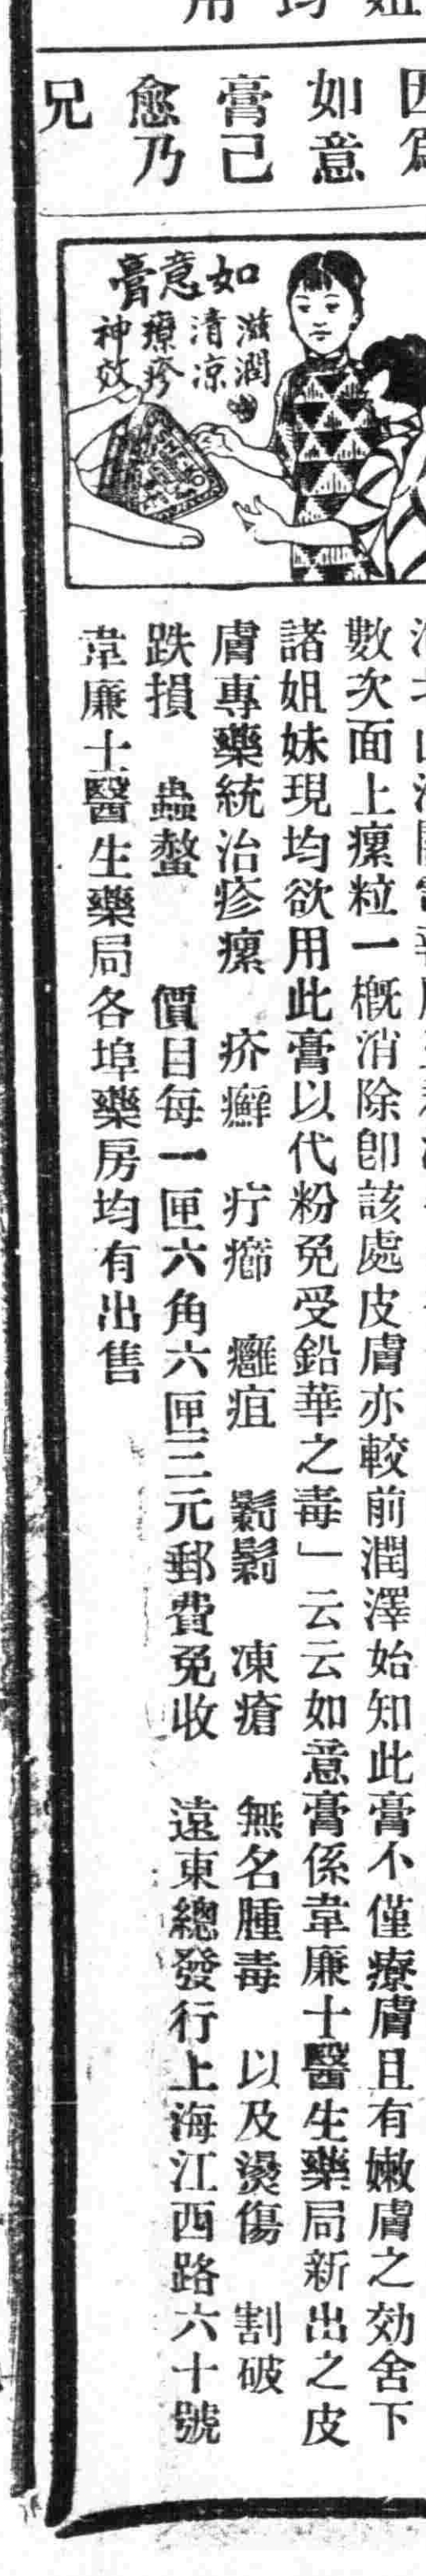 如意
膏已
愈乃
兄
如意膏
滋潤
清涼
療疹
神效
數次面上瘰粒一概消除卽該處皮膚亦較前潤澤始知此膏不僅療膚且有嫩膚之効舍下
諸姐妹現均欲用此膏以代粉免受鉛華之毒」云云如意膏係韋廉士醫生藥局新出之皮
膚專藥統治疹瘰 疥癬 疔癤 癰疽 鬎鬁 凍瘡 無名腫毒 以及燙傷 割破
跌損 蟲螫 價目每一匣六角六匣三元郵費免收 遠東總發行上海江西路六十號
韋廉士醫生藥局各埠藥房均有出售